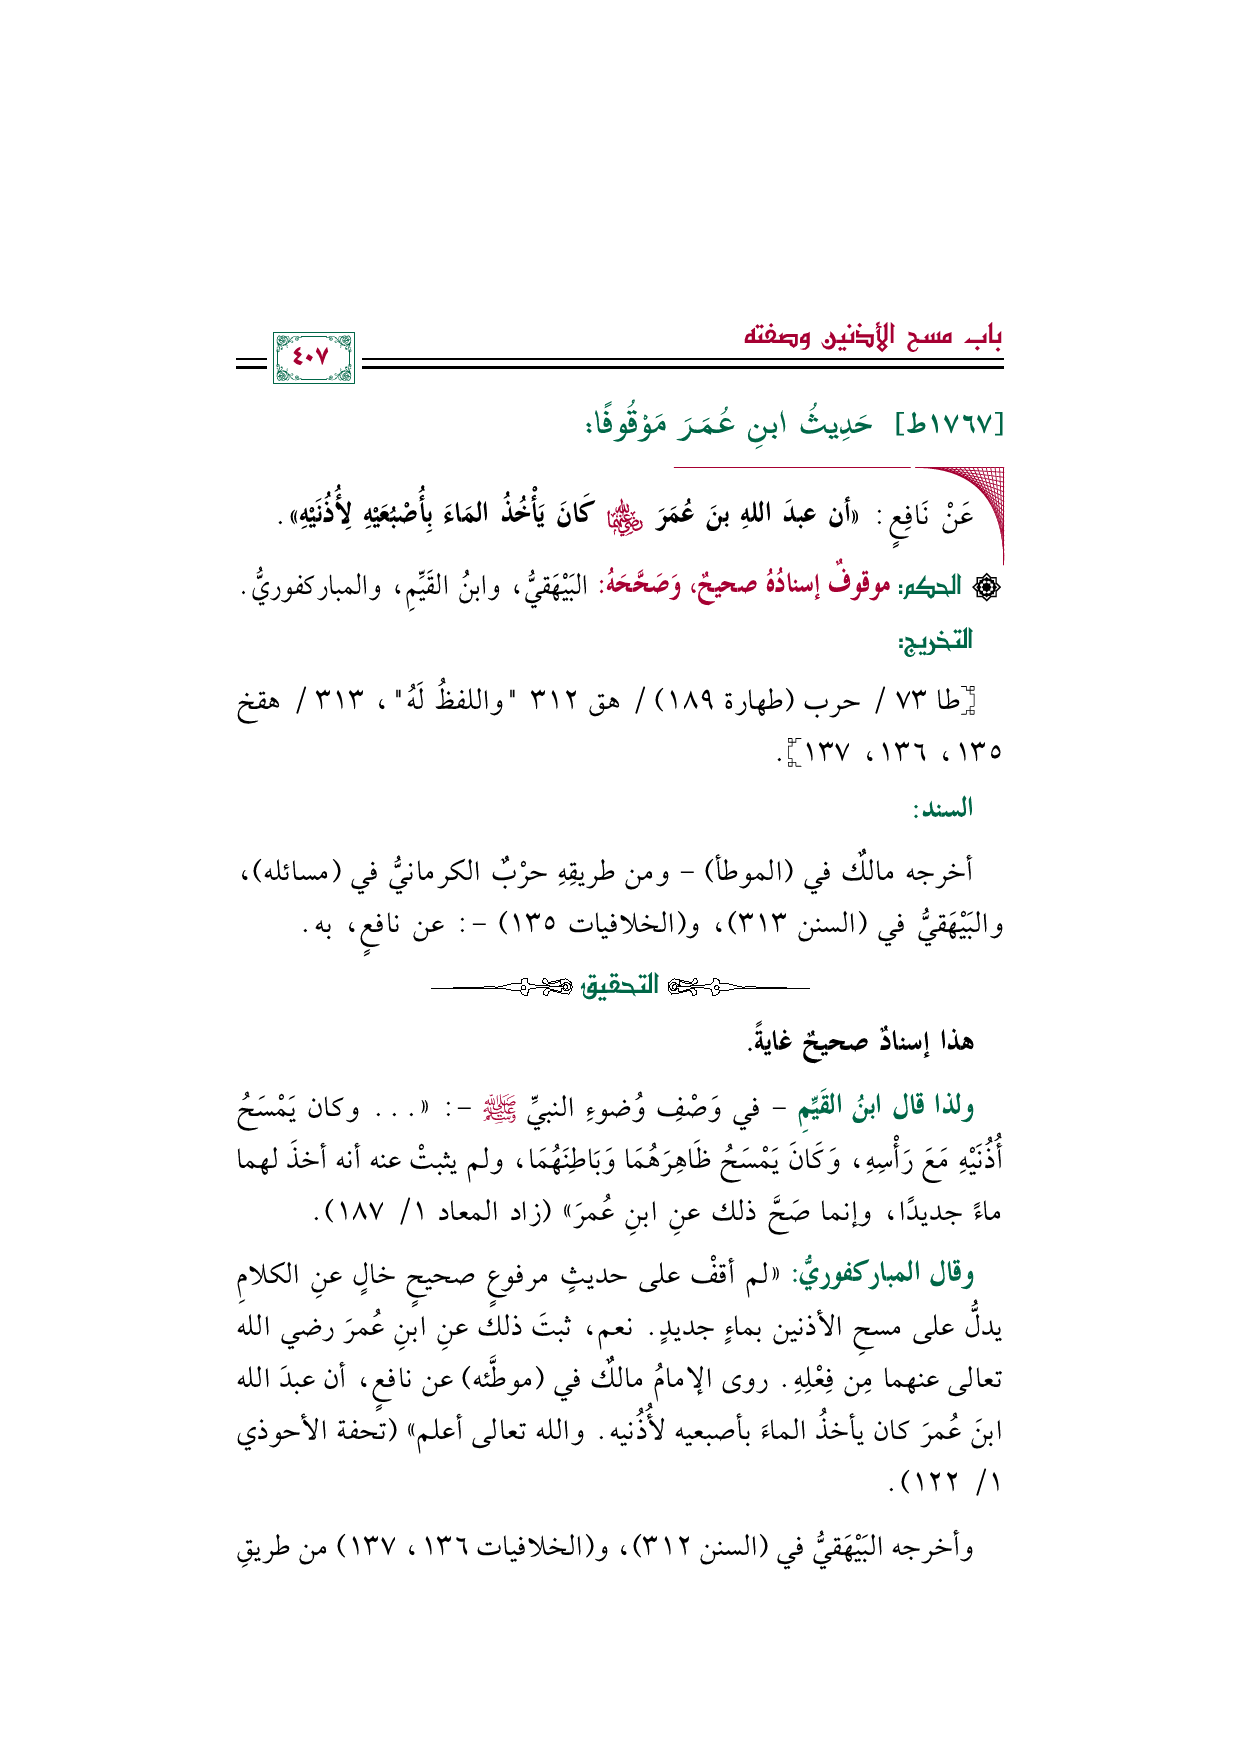 باب مسح الأذنين وصفته
٤٠٧
[١٧٦٧ط] حَدِيثُ ابنِ عُمَرَ مَوْقُوفًا:
عَنْ نَافِعٍ: «أن عبدَ اللهِ بنَ عُمَرَ رضي الله عنهما كَانَ يَأْخُذُ المَاءَ بِأُصْبُعَيْهِ لِأُذُنَيْهِ».
الحكم: موقوفٌ إسنادُهُ صحيحٌ، وَصَحَّحَهُ: البَيْهَقيُّ، وابنُ القَيِّمِ، والمباركفوريُّ.
التخريج:
[طا ٧٣ / حرب (طهارة ١٨٩) / هق ٣١٢ "واللفظُ لَهُ"، ٣١٣ / هقخ
١٣٥، ١٣٦، ١٣٧].
السند:
أخرجه مالكٌ في (الموطأ) - ومن طريقِهِ حرْبٌ الكرمانيُّ في (مسائله)،
والبَيْهَقيُّ في (السنن ٣١٣)، و(الخلافيات ١٣٥) -: عن نافعٍ، به.
التحقيق
هذا إسنادٌ صحيحٌ غايةً.
ولذا قال ابنُ القَيِّمِ - في وَصْفِ وُضوءِ النبيِّ ﷺ -: «... وكان يَمْسَحُ
أُذُنَيْهِ مَعَ رَأْسِهِ، وَكَانَ يَمْسَحُ ظَاهِرَهُمَا وَبَاطِنَهُمَا، ولم يثبتْ عنه أنه أخذَ لهما
ماءً جديدًا، وإنما صَحَّ ذلك عنِ ابنِ عُمرَ» (زاد المعاد ١/ ١٨٧).
وقال المباركفوريُّ: «لم أقفْ على حديثٍ مرفوعٍ صحيحٍ خالٍ عنِ الكلامِ
يدلُّ على مسحِ الأذنين بماءٍ جديدٍ. نعم، ثبتَ ذلك عنِ ابنِ عُمرَ رضي الله
تعالى عنهما مِن فِعْلِهِ. روى الإمامُ مالكٌ في (موطَّئه) عن نافعٍ، أن عبدَ الله
ابنَ عُمرَ كان يأخذُ الماءَ بأصبعيه لأُذُنيه. والله تعالى أعلم» (تحفة الأحوذي
١/ ١٢٢).
وأخرجه البَيْهَقيُّ في (السنن ٣١٢)، و(الخلافيات ١٣٦، ١٣٧) من طريقِ